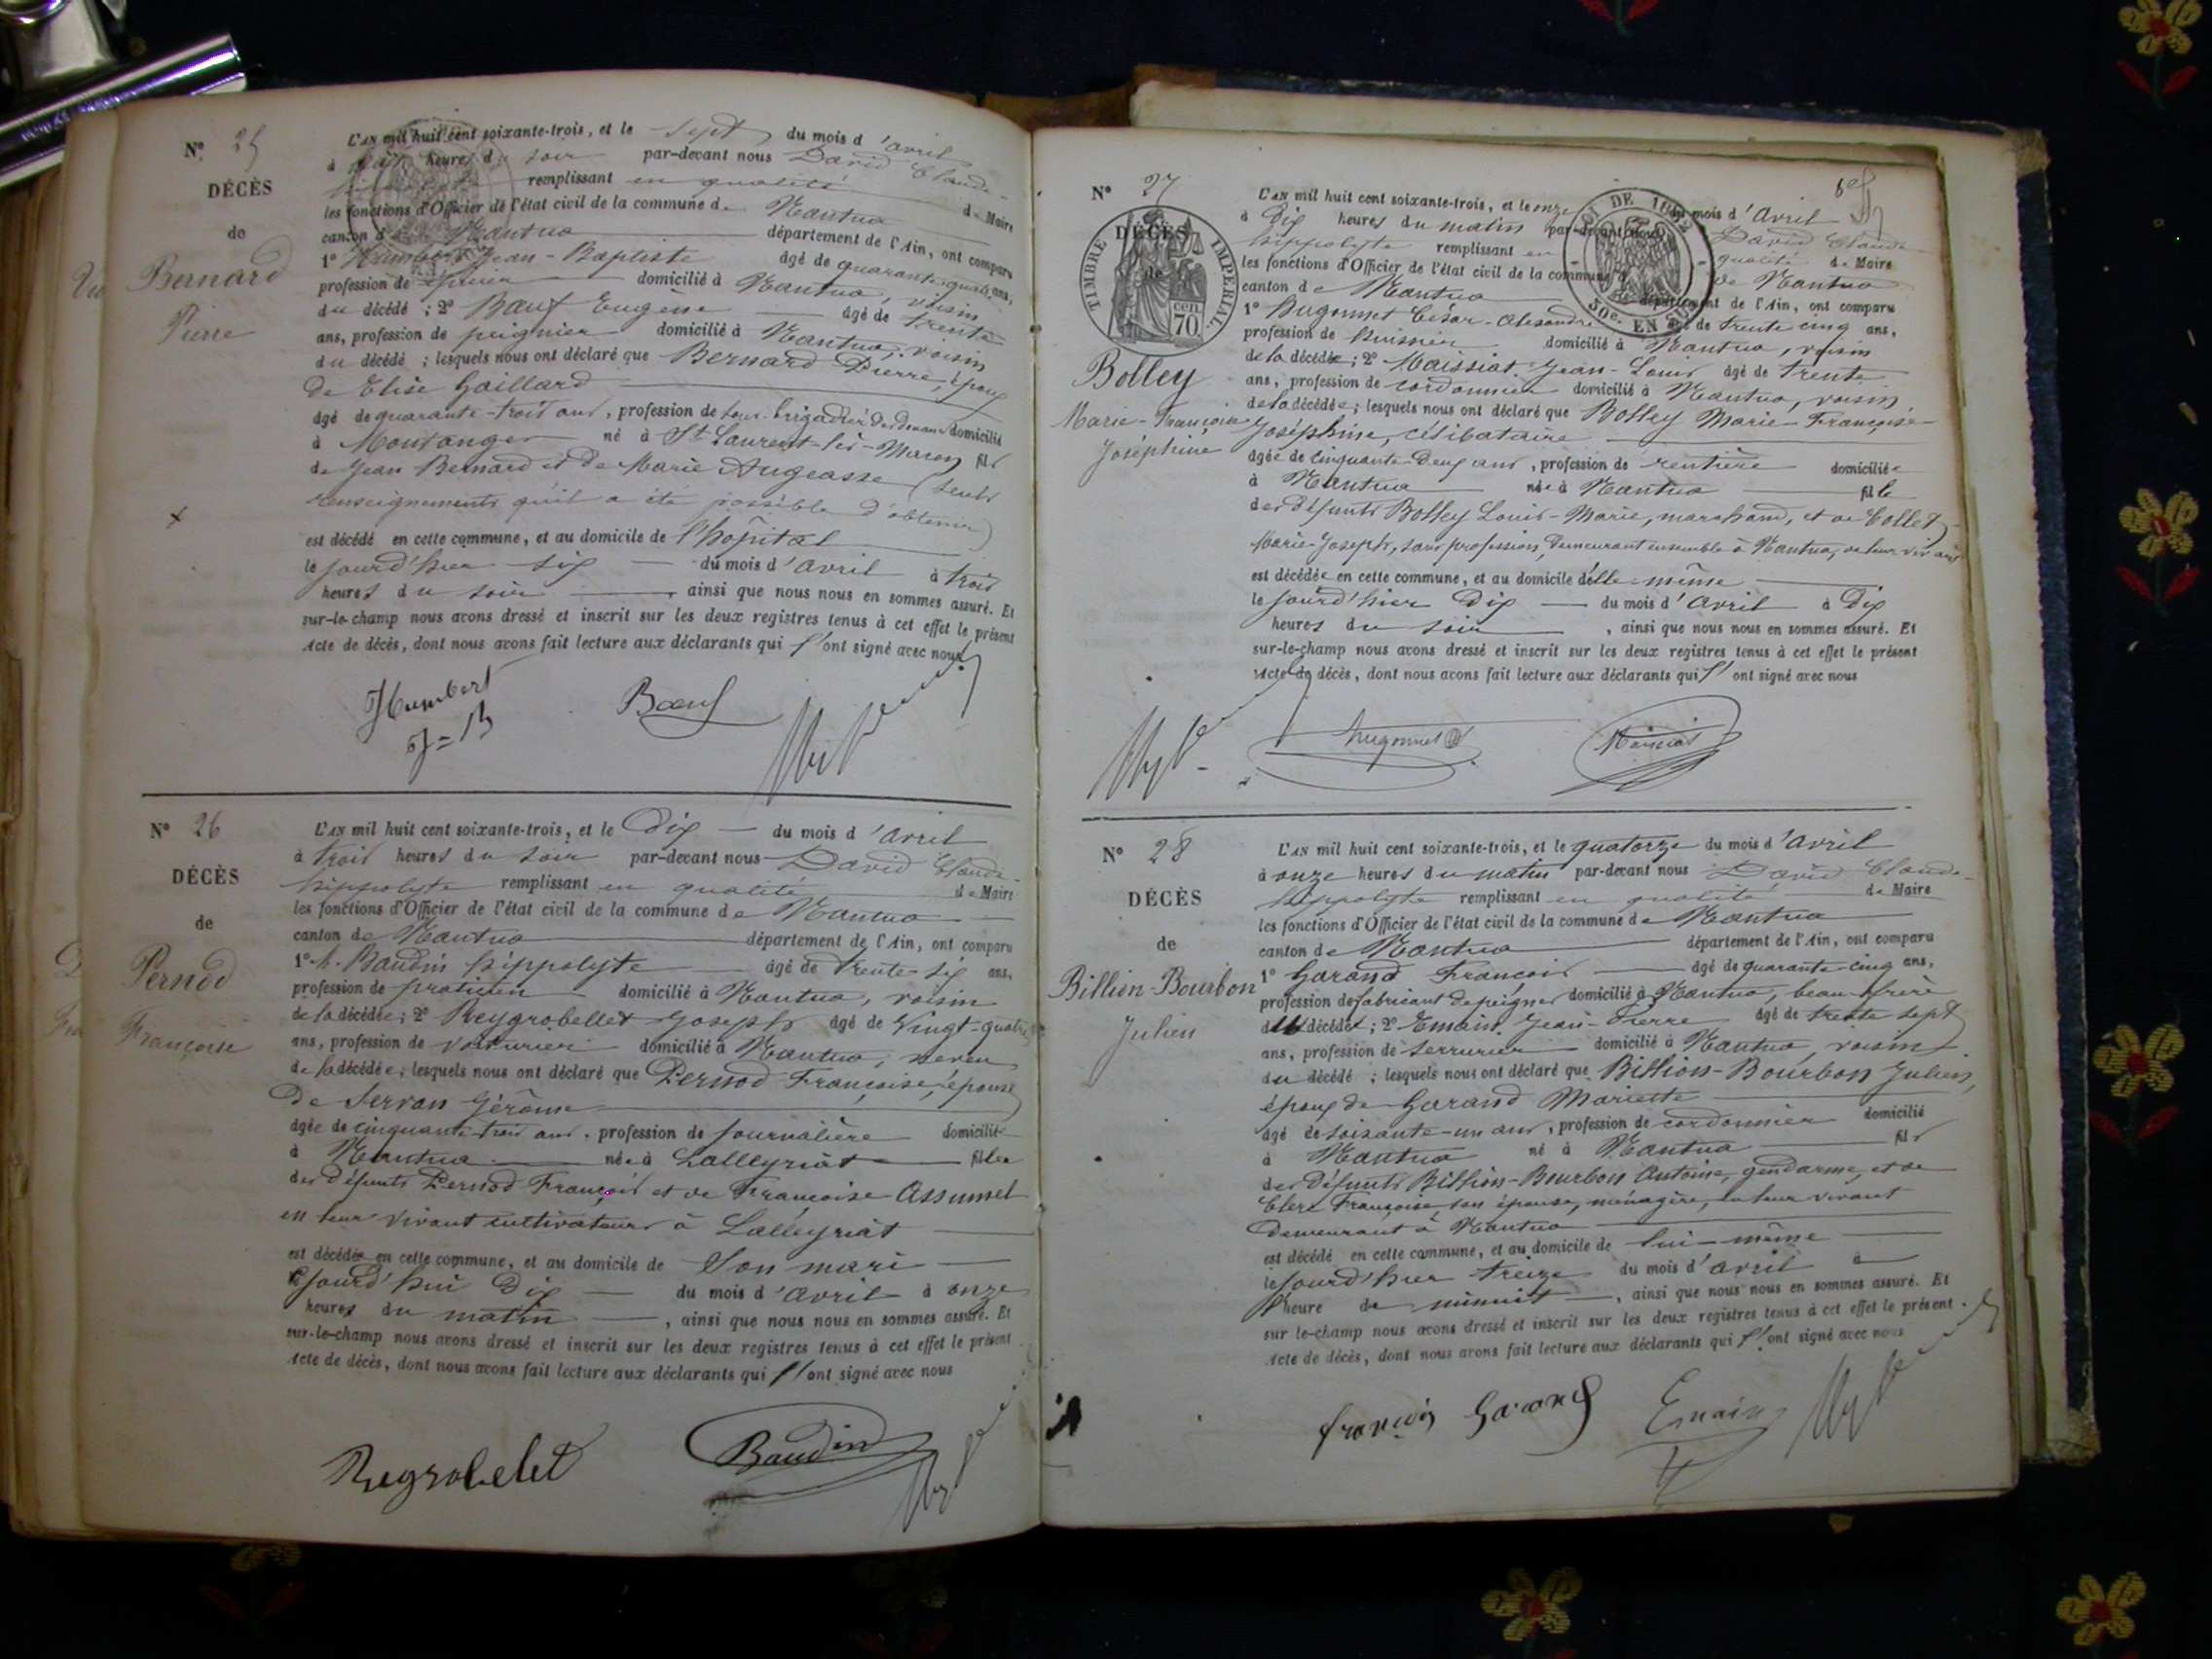 N° 25
DÉCÈS
de
Bernard
Pierre
L'AN mil huit cent soixante-trois, et le sept du mois d'avril
à heures du soir par-devant nous David Claude
remplissant en qualité de Maire
les fonctions d'Officier de l'état civil de la commune de Nantua
canton de Nantua département de l'Ain, ont comparu
1° Humbert Jean-Baptiste âgé de quarante quatre ans,
profession de épicier domicilié à Nantua, voisin
du décédé ; 2° Bœuf Eugène âgé de trente
ans, profession de peignier domicilié à Nantua, voisin
du décédé ; lesquels nous ont déclaré que Bernard Pierre, époux
de Elise Gaillard
âgé de quarante-trois ans, profession de sous-brigadier des douanes domicilié
à Montanges né à St Laurent-lès-Macon fils
de Jean Bernard et de Marie Augeasse (seuls
renseignements qu'il a été possible d'obtenir)
est décédé en cette commune, et au domicile de l'hôpital
le jourd'hier six du mois d'avril à trois
heures du soir ainsi que nous nous en sommes assuré. Et
sur-le-champ nous avons dressé et inscrit sur les deux registres tenus à cet effet le présent
Acte de décès, dont nous avons fait lecture aux déclarants qui l'ont signé avec nous.
Humbert
J=B
Bœuf
N° 26
DÉCÈS
de
Pernod
Françoise
L'AN mil huit cent soixante-trois, et le Dix du mois d'avril
à trois heures du soir par-devant nous David Claude-
hippolyte remplissant en qualité de Maire
les fonctions d'Officier de l'état civil de la commune de Nantua
canton de Nantua département de l'Ain, ont comparu
1° M. Baudin hippolyte âgé de trente-six ans,
profession de praticien domicilié à Nantua, voisin
de la décédée ; 2° Reygrobellet Joseph âgé de Vingt-quatre
ans, profession de voiturier domicilié à Nantua, neveu
de la décédée ; lesquels nous ont déclaré que Pernod Françoise, épouse
de Servan Gérôme
âgée de cinquante-trois ans, profession de journalière domiciliée
à Nantua née à Lalleyriat fille
des défunts Pernod François et de Françoise Assumel
en leur vivant cultivateurs à Lalleyriat
est décédée en cette commune, et au domicile de Son mari
le jourd'hui Dix du mois d'avril à onze
heures du matin, ainsi que nous nous en sommes assuré. Et
sur-le-champ nous avons dressé et inscrit sur les deux registres tenus à cet effet le présent
Acte de décès, dont nous avons fait lecture aux déclarants qui l'ont signé avec nous
Reygrobelet
Baudin
N° 27
DÉCÈS
de
TIMBRE IMPÉRIAL
70 cen
Bolley
Marie-Françoise
Joséphine
L'AN mil huit cent soixante-trois, et le onze du mois d'avril
à dix heures du matin par-devant nous David Claude
hippolyte remplissant en qualité de Maire
les fonctions d'Officier de l'état civil de la commune de Nantua
canton de Nantua département de l'Ain, ont comparu
1° Hugonnet César-Alexandre âgé de trente cinq ans,
profession de huissier domicilié à Nantua, voisin
de la décédée ; 2° Maissiat Jean-Louis âgé de trente
ans, profession de cordonnier domicilié à Nantua, voisin
de la décédée ; lesquels nous ont déclaré que Bolley Marie-Françoise-
Joséphine, célibataire
âgée de cinquante-deux ans, profession de rentière domiciliée
à Nantua née à Nantua fille
des défunts Bolley Louis-Marie, marchand, et de Collet
Marie-Joseph, sans profession, demeurant ensemble à Nantua, de leur vivant
est décédée en cette commune, et au domicile d'elle-même
le jourd'hier Dix du mois d'avril à Dix
heures du soir, ainsi que nous nous en sommes assuré. Et
sur-le-champ nous avons dressé et inscrit sur les deux registres tenus à cet effet le présent
Acte de décès, dont nous avons fait lecture aux déclarants qui l'ont signé avec nous
hugonnet
Maissiat
N° 28
DÉCÈS
de
Billion-Bourbon
Julien
L'AN mil huit cent soixante-trois, et le quatorze du mois d'avril
à onze heures du matin par-devant nous David Claude-
hippolyte remplissant en qualité de Maire
les fonctions d'Officier de l'état civil de la commune de Nantua
canton de Nantua département de l'Ain, ont comparu
1° Garand François âgé de quarante-cinq ans,
profession de fabricant de peignes domicilié à Nantua, beau-frère
du décédé ; 2° Emain Jean-Pierre âgé de trente sept
ans, profession de serrurier domicilié à Nantua, voisin
du décédé ; lesquels nous ont déclaré que Billion-Bourbon Julien,
époux de Garand Mariette
âgé de soixante-un ans, profession de cordonnier domicilié
à Nantua né à Nantua fils
des défunts Billion-Bourbon Antoine, gendarme, et de
Clerc Françoise, son épouse, ménagère, en leur vivant
demeurant à Nantua
est décédé en cette commune, et au domicile de lui-même
le jourd'hier treize du mois d'avril à
l'heure de minuit, ainsi que nous nous en sommes assuré. Et
sur le-champ nous avons dressé et inscrit sur les deux registres tenus à cet effet le présent
Acte de décès, dont nous avons fait lecture aux déclarants qui l'ont signé avec nous
françois Garand
Emain